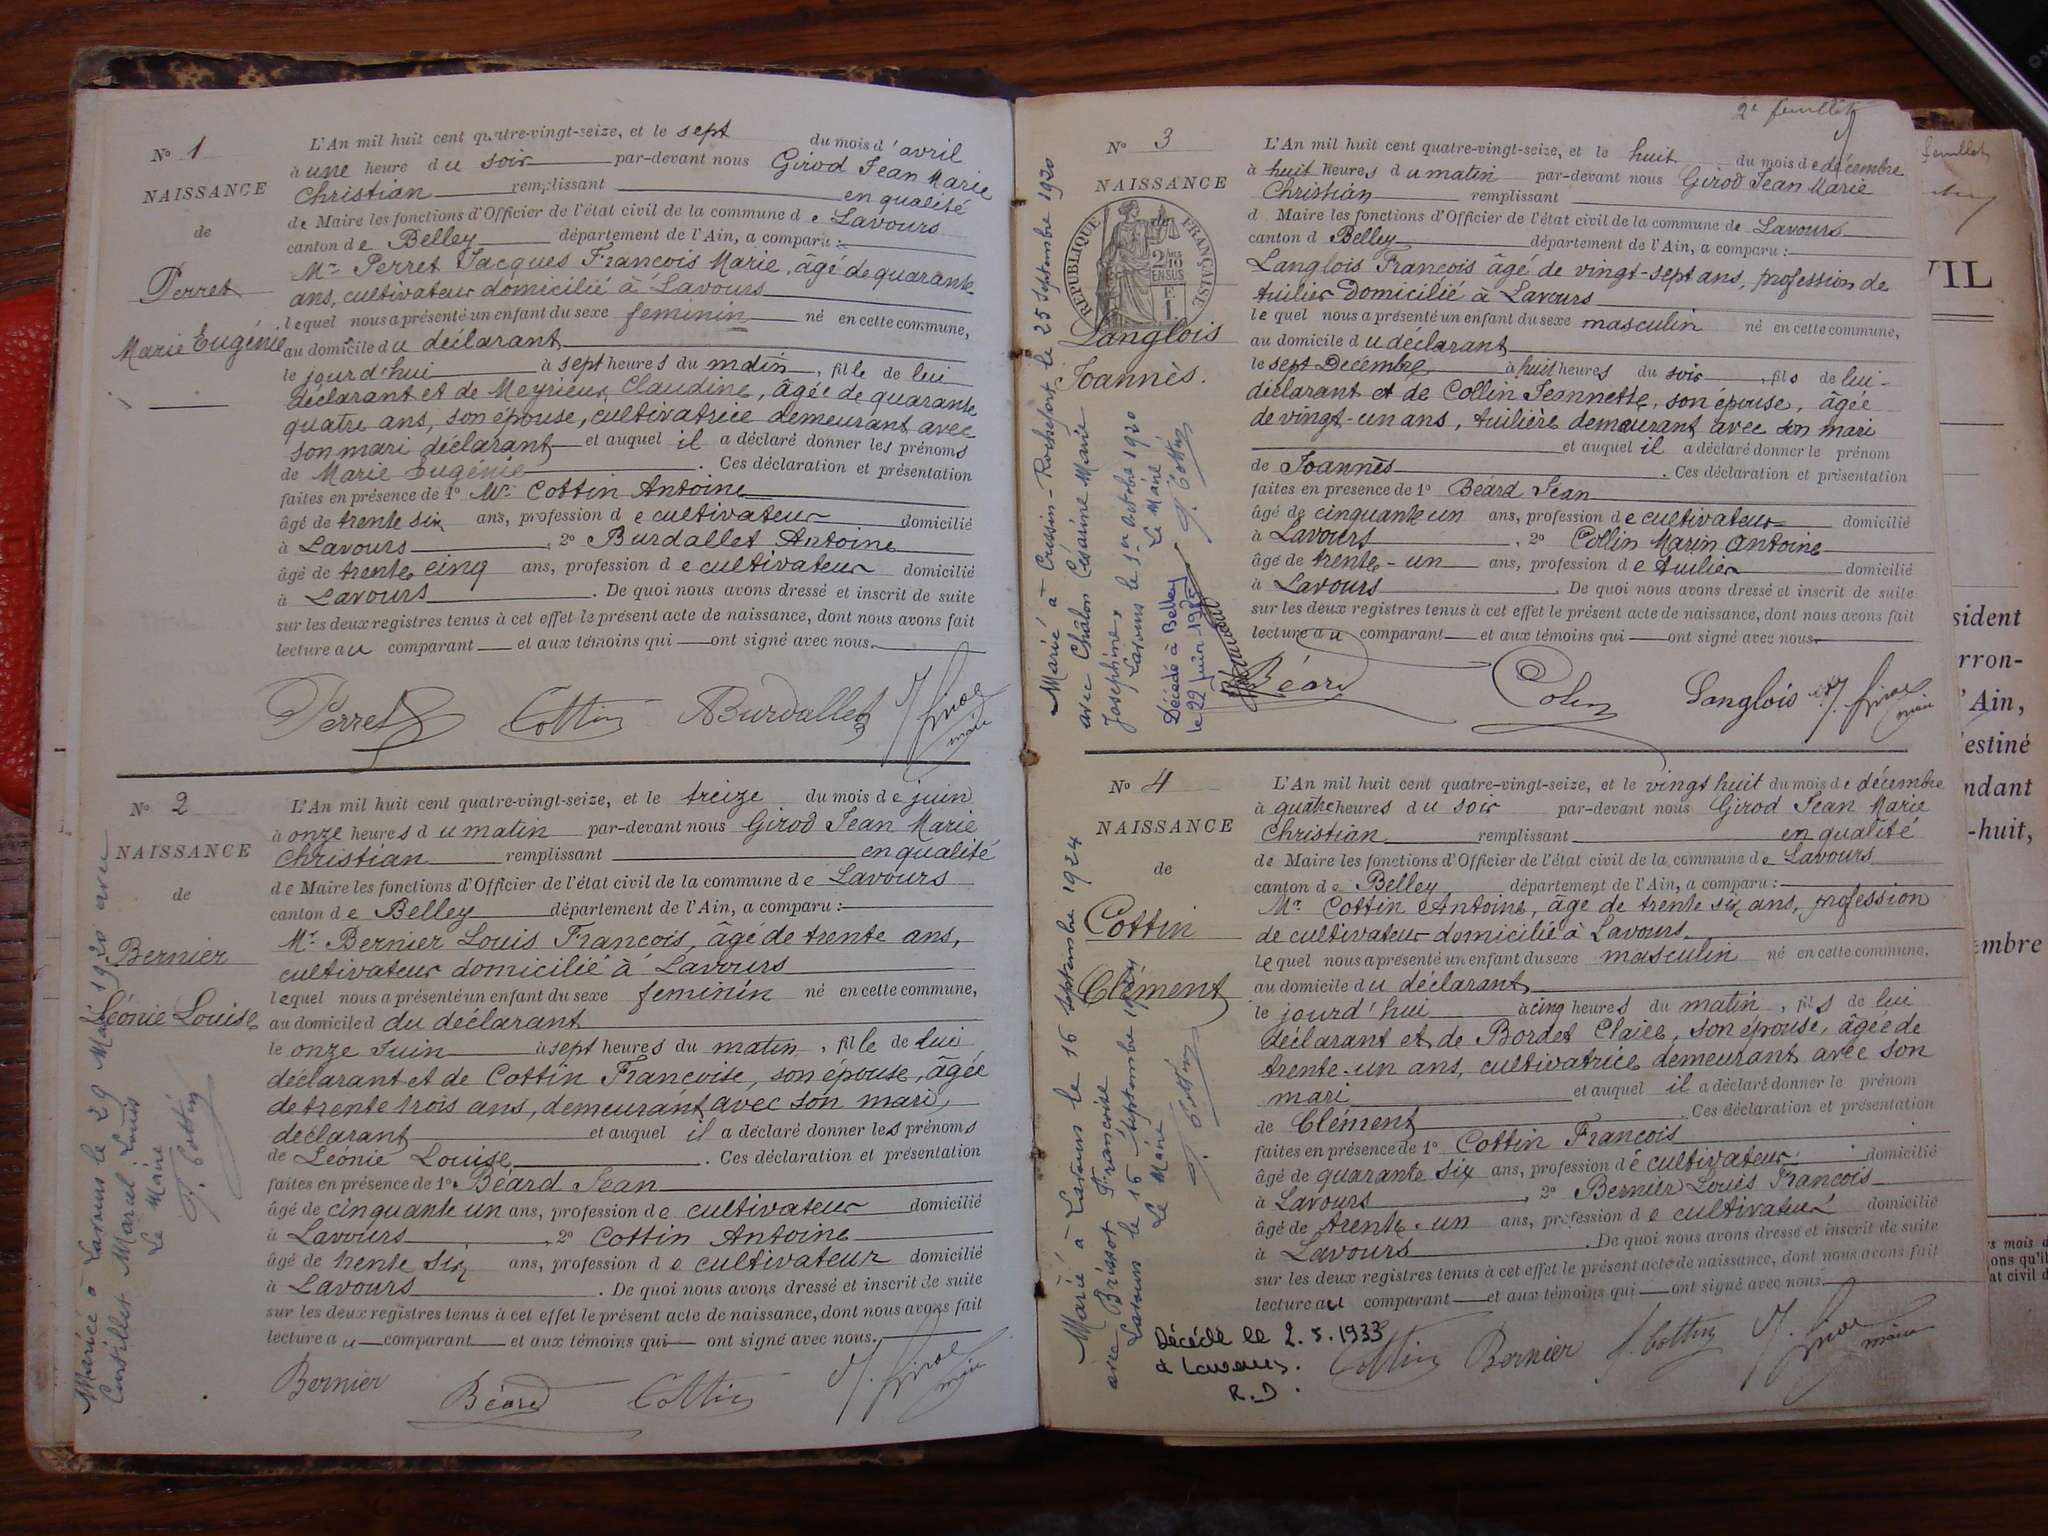 No 1
NAISSANCE
de
Perret
Marie Eugénie
L'An mil huit cent quatre-vingt-seize, et le sept du mois d'avril
à une heure du soir par-devant nous Girod Jean Marie
Christian remplissant en qualité
de Maire les fonctions d'Officier de l'état civil de la commune de Lavours
canton de Belley département de l'Ain, a comparu :
Mr Perret Jacques François Marie, âgé de quarante
ans, cultivateur domicilié à Lavours
lequel nous a présenté un enfant du sexe feminin né en cette commune,
au domicile du déclarant
le jourd'hui à sept heures du matin, fille de lui
déclarant et de Meyrieux Claudine, âgée de quarante
quatre ans, son épouse, cultivatrice demeurant avec
son mari déclarant et auquel il a déclaré donner les prénoms
de Marie Eugénie. Ces déclaration et présentation
faites en présence de 1º Mr Cottin Antoine
âgé de trente six ans, profession de cultivateur domicilié
à Lavours, 2º Burdallet Antoine
âgé de trente cinq ans, profession de cultivateur domicilié
à Lavours. De quoi nous avons dressé et inscrit de suite
sur les deux registres tenus à cet effet le présent acte de naissance, dont nous avons fait
lecture au comparant et aux témoins qui ont signé avec nous.
Perret Cottin ABurdallet J. Girod
maire
No 2
NAISSANCE
de
Bernier
Léonie Louise
Mariée à Lavours le 29 Mai 1920 avec
Curtillet Marcel Louis
Le Maire
F. Cottin
L'An mil huit cent quatre-vingt-seize, et le treize du mois de juin
à onze heures du matin par-devant nous Girod Jean Marie
Christian remplissant en qualité
de Maire les fonctions d'Officier de l'état civil de la commune de Lavours
canton de Belley département de l'Ain, a comparu :
Mr Bernier Louis François, âgé de trente ans,
cultivateur domicilié à Lavours
lequel nous a présenté un enfant du sexe feminin né en cette commune,
au domicile d du déclarant
le onze Juin à sept heures du matin, fille de lui
déclarant et de Cottin Françoise, son épouse, âgée
de trente trois ans, demeurant avec son mari,
déclarant et auquel il a déclaré donner les prénoms
de Léonie Louise. Ces déclaration et présentation
faites en présence de 1º Béard Jean
âgé de cinquante un ans, profession de cultivateur domicilié
à Lavours, 2º Cottin Antoine
âgé de trente six ans, profession de cultivateur domicilié
à Lavours. De quoi nous avons dressé et inscrit de suite
sur les deux registres tenus à cet effet le présent acte de naissance, dont nous avons fait
lecture au comparant et aux témoins qui ont signé avec nous.
Bernier Béard Cottin J. Girod
maire
2e feuillet
No 3
NAISSANCE
RÉPUBLIQUE FRANÇAISE
2/10
EN SUS
Langlois
Joannès.
Marié à Cressin-Rochefort, le 25 Septembre 1920
avec Châlon Césarine Marie
Joséphine,
Lavours le 5 octobre 1920
Le Maire
F. Cottin
Décédé à Belley
le 22 juin 1985
L'An mil huit cent quatre-vingt-seize, et le huit du mois de décembre
à huit heures du matin par-devant nous Girod Jean Marie
Christian remplissant
d Maire les fonctions d'Officier de l'état civil de la commune de Lavours
canton d Belley département de l'Ain, a comparu :
Langlois François âgé de vingt-sept ans, profession de
tuilier domicilié à Lavours
lequel nous a présenté un enfant du sexe masculin né en cette commune,
au domicile du déclarant
le sept Décembre à huit heures du soir, fils de lui
déclarant et de Collin Jeannette, son épouse, âgée
de vingt-un ans, tuilière demeurant avec son mari
et auquel il a déclaré donner le prénom
de Joannès. Ces déclaration et présentation
faites en présence de 1º Béard Jean
âgé de cinquante un ans, profession de cultivateur domicilié
à Lavours, 2º Collin Marin Antoine
âgé de trente-un ans, profession de tuilier domicilié
à Lavours. De quoi nous avons dressé et inscrit de suite
sur les deux registres tenus à cet effet le présent acte de naissance, dont nous avons fait
lecture au comparant et aux témoins qui ont signé avec nous.
Béard Colin Langlois J. Girod
maire
No 4
NAISSANCE
de
Cottin
Clément
Marié à Lavours le 16 septembre 1924
avec Brissot Françoise
Lavours le 16 septembre 1924
Le Maire
F. Cottin
Décédé le 2.5.1933
à Lavours.
R.D.
L'An mil huit cent quatre-vingt-seize, et le vingt huit du mois de décembre
à quatre heures du soir par-devant nous Girod Jean Marie
Christian remplissant en qualité
de Maire les fonctions d'Officier de l'état civil de la commune de Lavours
canton de Belley département de l'Ain, a comparu :
Mr Cottin Antoine, âgé de trente six ans, profession
de cultivateur domicilié à Lavours
lequel nous a présenté un enfant du sexe masculin né en cette commune,
au domicile du déclarant
le jourd'hui à cinq heures du matin, fils de lui
déclarant et de Bordet Claire, son épouse, âgée de
trente-un ans, cultivatrice demeurant avec son
mari et auquel il a déclaré donner le prénom
de Clément. Ces déclaration et présentation
faites en présence de 1º Cottin François
âgé de quarante six ans, profession de cultivateur domicilié
à Lavours, 2º Bernier Louis François
âgé de trente-un ans, profession de cultivateur domicilié
à Lavours. De quoi nous avons dressé et inscrit de suite
sur les deux registres tenus à cet effet le présent acte de naissance, dont nous avons fait
lecture au comparant et aux témoins qui ont signé avec nous.
Cottin Bernier f. Cottin J. Girod
maire
feuillet
VIL
sident
rron-
Ain,
estiné
ndant
-huit,
embre
mois d
ons qu'il
at civil d